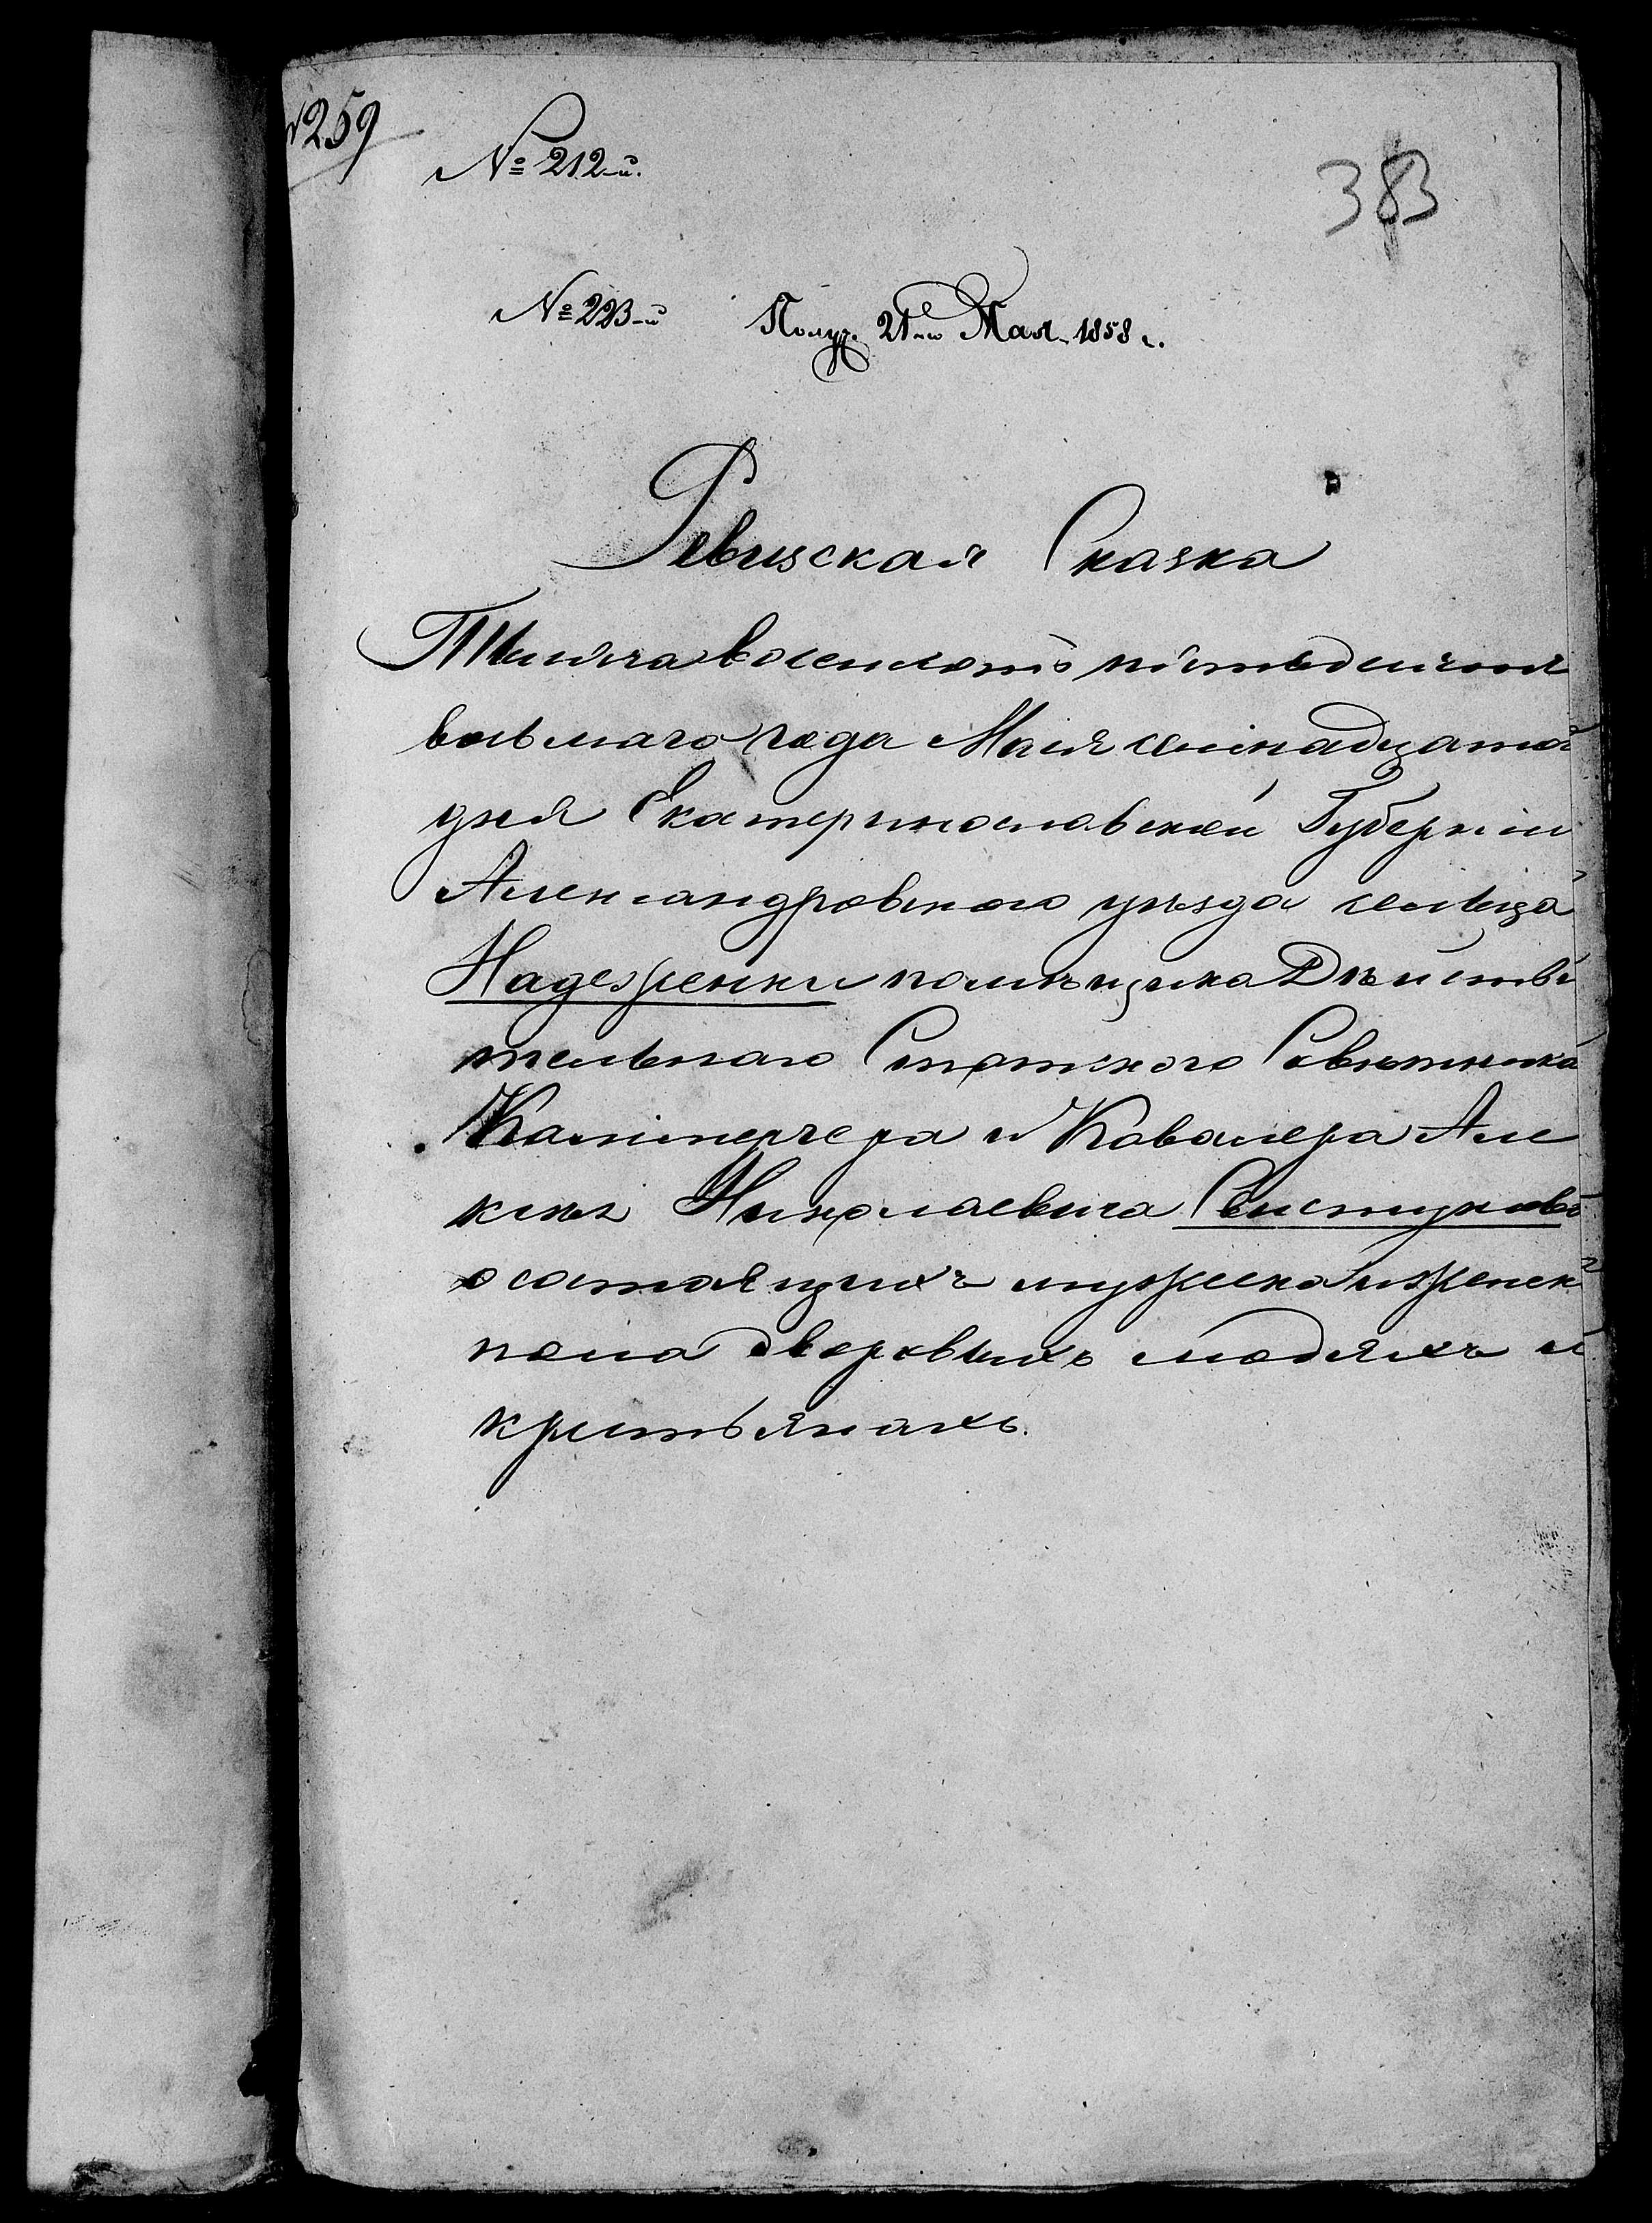 №259
№ 212-й.
383
№ 223-й Получ. 21го Мая 1858 г.
Ревизская Сказка
Тысяча восемьсотъ пятьдесятъ
восьмаго года Маія семнадцатаго
дня Екатеринославской Губерніи
Александровскаго уѣзда сельца
Надеженки помѣщика Дѣйстви
тельнаго Статскаго Совѣтника
Каммергера и Кавалера Але
ксѣя Николаевича Свистунова
о состоящихъ мужеска и женска
пола дворовыхъ людяхъ и
крестьянахъ.